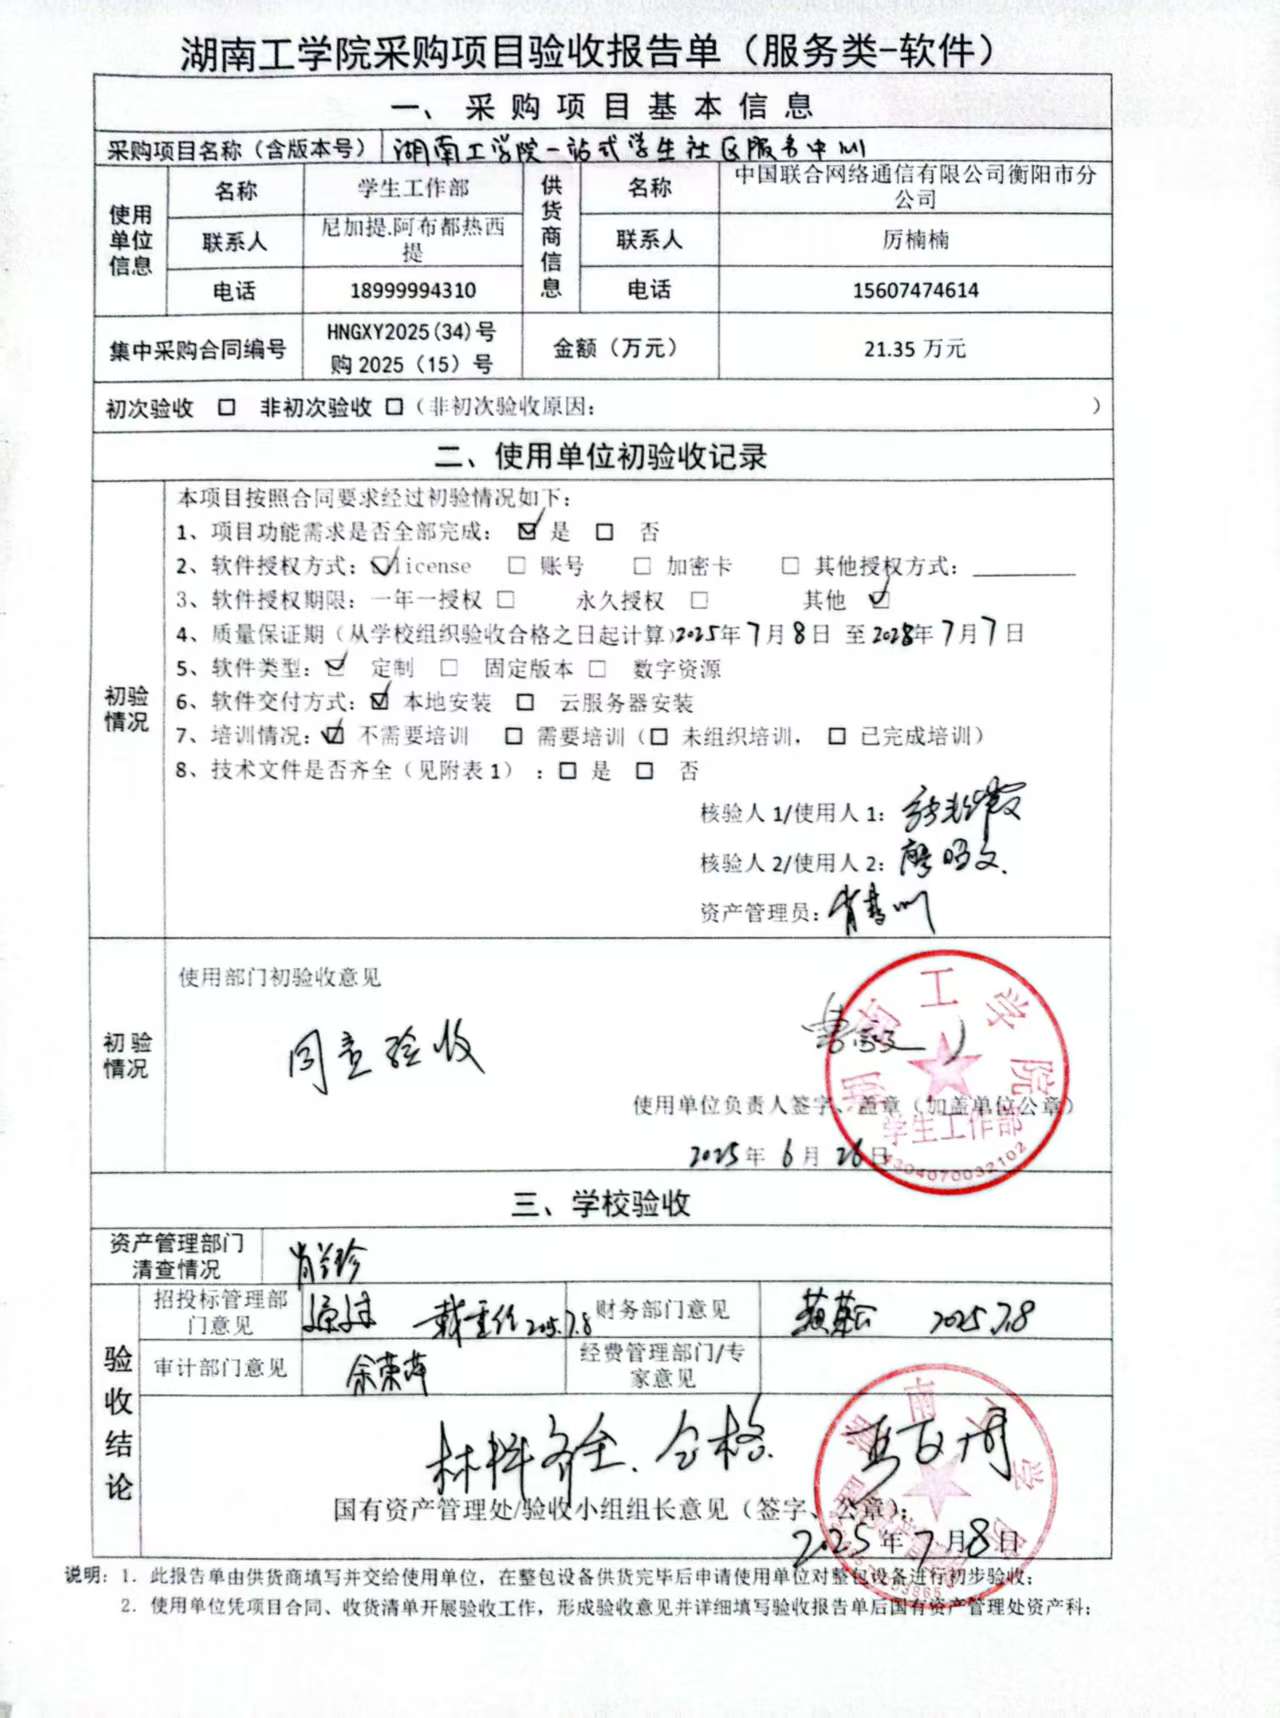 湖南工学院采购项目验收报告单（服务类-软件）
一、采购项目基本信息
采购项目名称（含版本号） 湖南工学院一站式学生社区服务中心
使用单位信息 名称 学生工作部 供货商信息 名称 中国联合网络通信有限公司衡阳市分公司
联系人 尼加提.阿布都热西提 联系人 厉楠楠
电话 18999994310 电话 15607474614
集中采购合同编号 HNGXY2025(34)号
购 2025（15）号 金额（万元） 21.35 万元
初次验收 □ 非初次验收 □（非初次验收原因： ）
二、使用单位初验收记录
初验情况
本项目按照合同要求经过初验情况如下：
1、项目功能需求是否全部完成： ☑ 是 □ 否
2、软件授权方式：☑license □ 账号 □ 加密卡 □ 其他授权方式：
3、软件授权期限：一年一授权 □ 永久授权 □ 其他 ☑
4、质量保证期（从学校组织验收合格之日起计算)2025年7月8日 至2028年7月7日
5、软件类型：☑ 定制 □ 固定版本 □ 数字资源
6、软件交付方式：☑ 本地安装 □ 云服务器安装
7、培训情况：☑ 不需要培训 □ 需要培训（□ 未组织培训， □ 已完成培训）
8、技术文件是否齐全（见附表1）：□ 是 □ 否
核验人 1/使用人 1：
核验人 2/使用人 2：
资产管理员：
初验情况
使用部门初验收意见
同意验收
使用单位负责人签字、盖章（加盖单位公章）
2025年 6月 26日
湖南工学院
学生工作部
4304070032102
三、学校验收
资产管理部门清查情况
验收结论
招投标管理部门意见 2025.7.8 财务部门意见 2025.7.8
审计部门意见 余荣华 经费管理部门/专家意见
材料齐全、合格
国有资产管理处/验收小组组长意见（签字、公章）：
2025年7月8日
湖南工学院
说明：1. 此报告单由供货商填写并交给使用单位，在整包设备供货完毕后申请使用单位对整包设备进行初步验收；
2. 使用单位凭项目合同、收货清单开展验收工作，形成验收意见并详细填写验收报告单后国有资产管理处资产科；